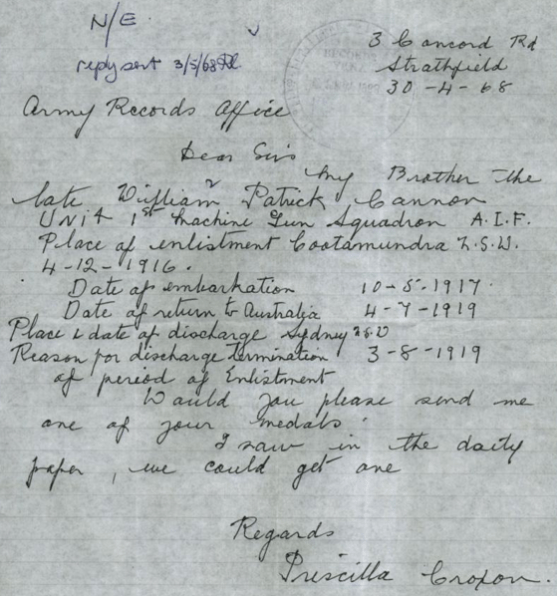 N/E.
reply sent 3/5/68
3 Concord Rd
Strathfield
30-4-68
RECORDS
Army Records Office
Dear Sirs
My Brother the
late William Patrick Cannon
Unit 1st Machine Gun Squadron A.I.F.
Place of enlistment Cootamundra N.S.W.
4-12-1916.
Date of embarkation 10-5-1917.
Date of return to Australia 4-7-1919
Place & date of discharge Sydney
Reason for discharge Termination 3-8-1919
of period of Enlistment
Would you please send me
one of your medals.
I saw in the daily
paper, we could get one
Regards
Priscilla Croxon.